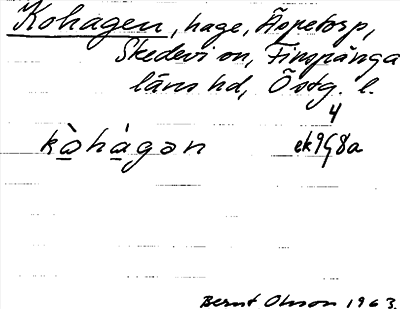 Kohagen, hage, Äspetorp,
Skedevi sn, Finspånga
läns hd, Östg. l.
4
kò̲hà̲gən ek9G8a
Bernt Olsson 1963.